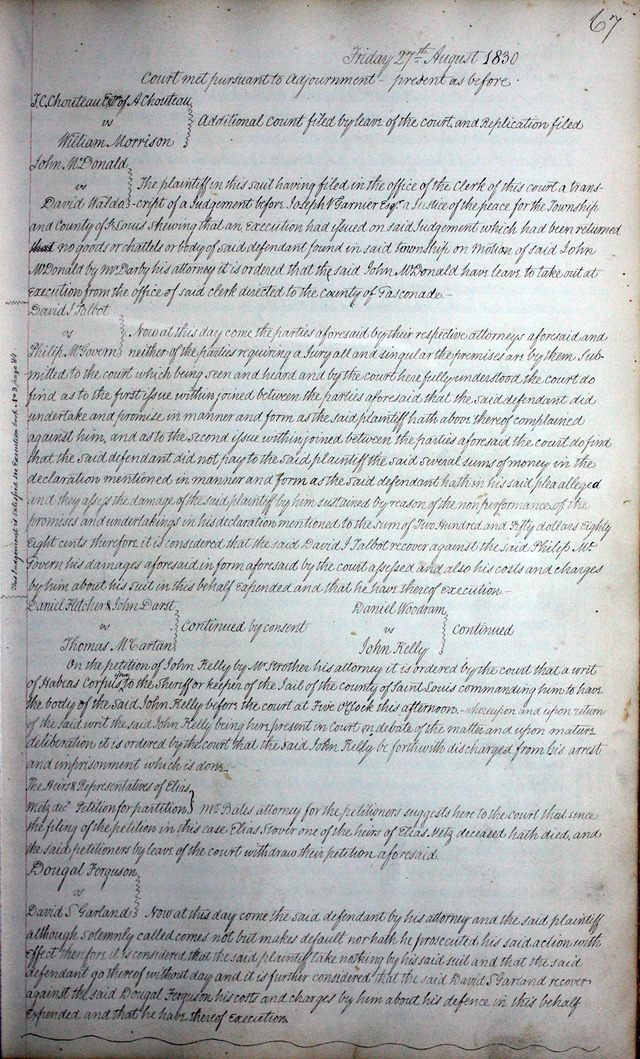 67
Friday 27th August 1830
Court met pursuant to adjournment - present as before.
T.C. Chouteau Extr of A Chouteau
vs
William Morrison
Additional Count filed by leave of the court, and Replication filed
John McDonald
vs
David Waldo
The plaintiff in this suit having filed in the office of the Clerk of this court a trans-
-cript of a Judgement before Joseph V Garnier Esqr. a Justice of the peace for the Township
and County of St Louis shewing that an Execution had issued on said Judgement which had been returned
that no goods or chattels or body of said defendant found in said township on Motion of said John
McDonald by Mr Darby his attorney it is ordered that the said John McDonald have leave to take out at
Execution from the office of said clerk directed to the County of Gasconade.-
David I Talbot
vs
Philip McGovern
Now at this day come the parties aforesaid by their respective attorneys aforesaid and
neither of the parties requiring a Jury all and singular the premises are by them sub-
mitted to the court which being seen and heard and by the court here fully understood the court do
find as to the first issue within joined between the parties aforesaid that the said defendant did
undertake and promise in manner and form as the said plaintiff hath above thereof complained
against him, and as to the second issue within joined between the parties aforesaid the court do find
that the said defendant did not pay to the said plaintiff the said several sums of money in the
declaration mentioned in manner and form as the said defendant hath in his said plea alleged
and they assess the damage of the said plaintiff by him sustained by reason of the non performance of the
promises and undertakings in his declaration mentioned to the sum of Two Hundred and Fifty dollars Eighty
Eight cents therefore it is considered that the said David I Talbot recover against the said Philip Mc
Govern his damages aforesaid in form aforesaid by the court assessed and also his costs and charges
by him about his suit in this behalf expended and that he have thereof execution.-
This Judgement is satisfied see Execution book page 84.
Daniel Fletcher & John Darst
vs
Thomas McCartan
Continued by consent
Daniel Woodram
vs
John Kelly
Continued
On the petition of John Kelly by Mr Strother his attorney it is ordered by the court that a writ
of Habeas Corpus to the Sheriff or keeper of the Jail of the county of Saint Louis commanding him to have
the body of the said John Kelly before the court at Five O'Clock this afternoon.- whereupon and upon return
of the said writ the said John Kelly being here present in Court on debate of the matter and upon mature
deliberation it is ordered by the court that the said John Kelly be forthwith discharged from his arrest
and imprisonment which is done.
The Heirs & Representatives of Elias
Metz decd Petition for partition
Mr Bates attorney for the petitioners suggests here to the court that since
the filing of the petition in this case Elias Stover one of the heirs of Elias Metz deceased hath died, and
the said petitioners by leave of the court withdraw their petition aforesaid.
Dougal Ferguson
vs
David S Garland
Now at this day come the said defendant by his attorney and the said plaintiff
although solemnly called comes not but makes default nor hath he prosecuted his said action with
effect therefore it is considered that the said plaintiff take nothing by his said suit and that the said
defendant go thereof without day and it is further considered that the said David S Garland recover
against the said Dougal Ferguson his costs and charges by him about his defence in this behalf
expended and that he have thereof execution.